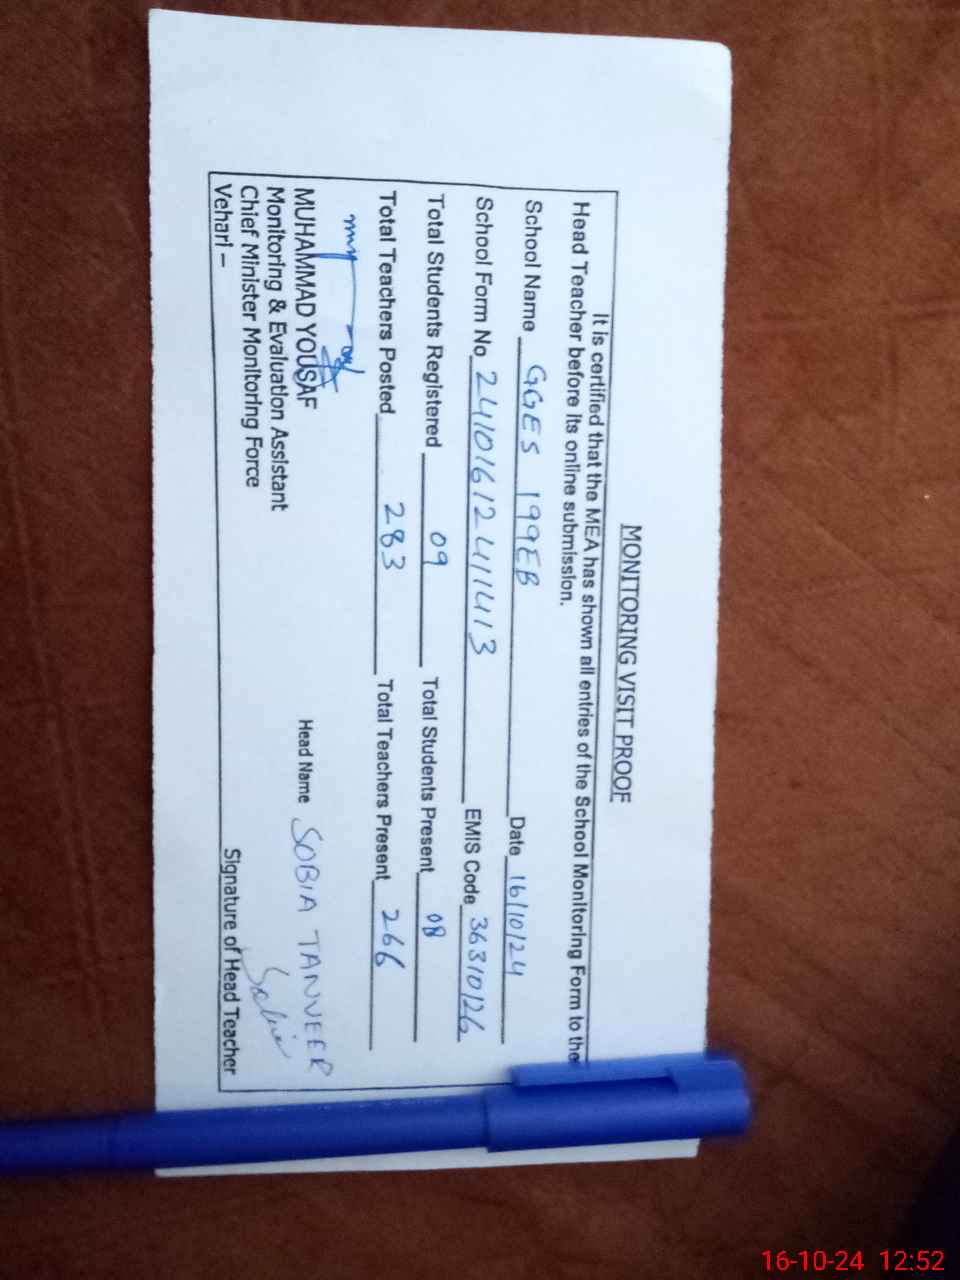 MONITORING VISIT PROOF
It is certified that the MEA has shown all entries of the School Monitoring Form to the
Head Teacher before its online submission.
School Name GGES 199EB Date 16/10/24
School Form No 24101612411413 EMIS Code 36310126
Total Students Registered 09 Total Students Present 08
Total Teachers Posted 283 Total Teachers Present 266
MUHAMMAD YOUSAF Head Name SOBIA TANVEER
Monitoring & Evaluation Assistant
Chief Minister Monitoring Force
Vehari – Signature of Head Teacher
16-10-24 12:52